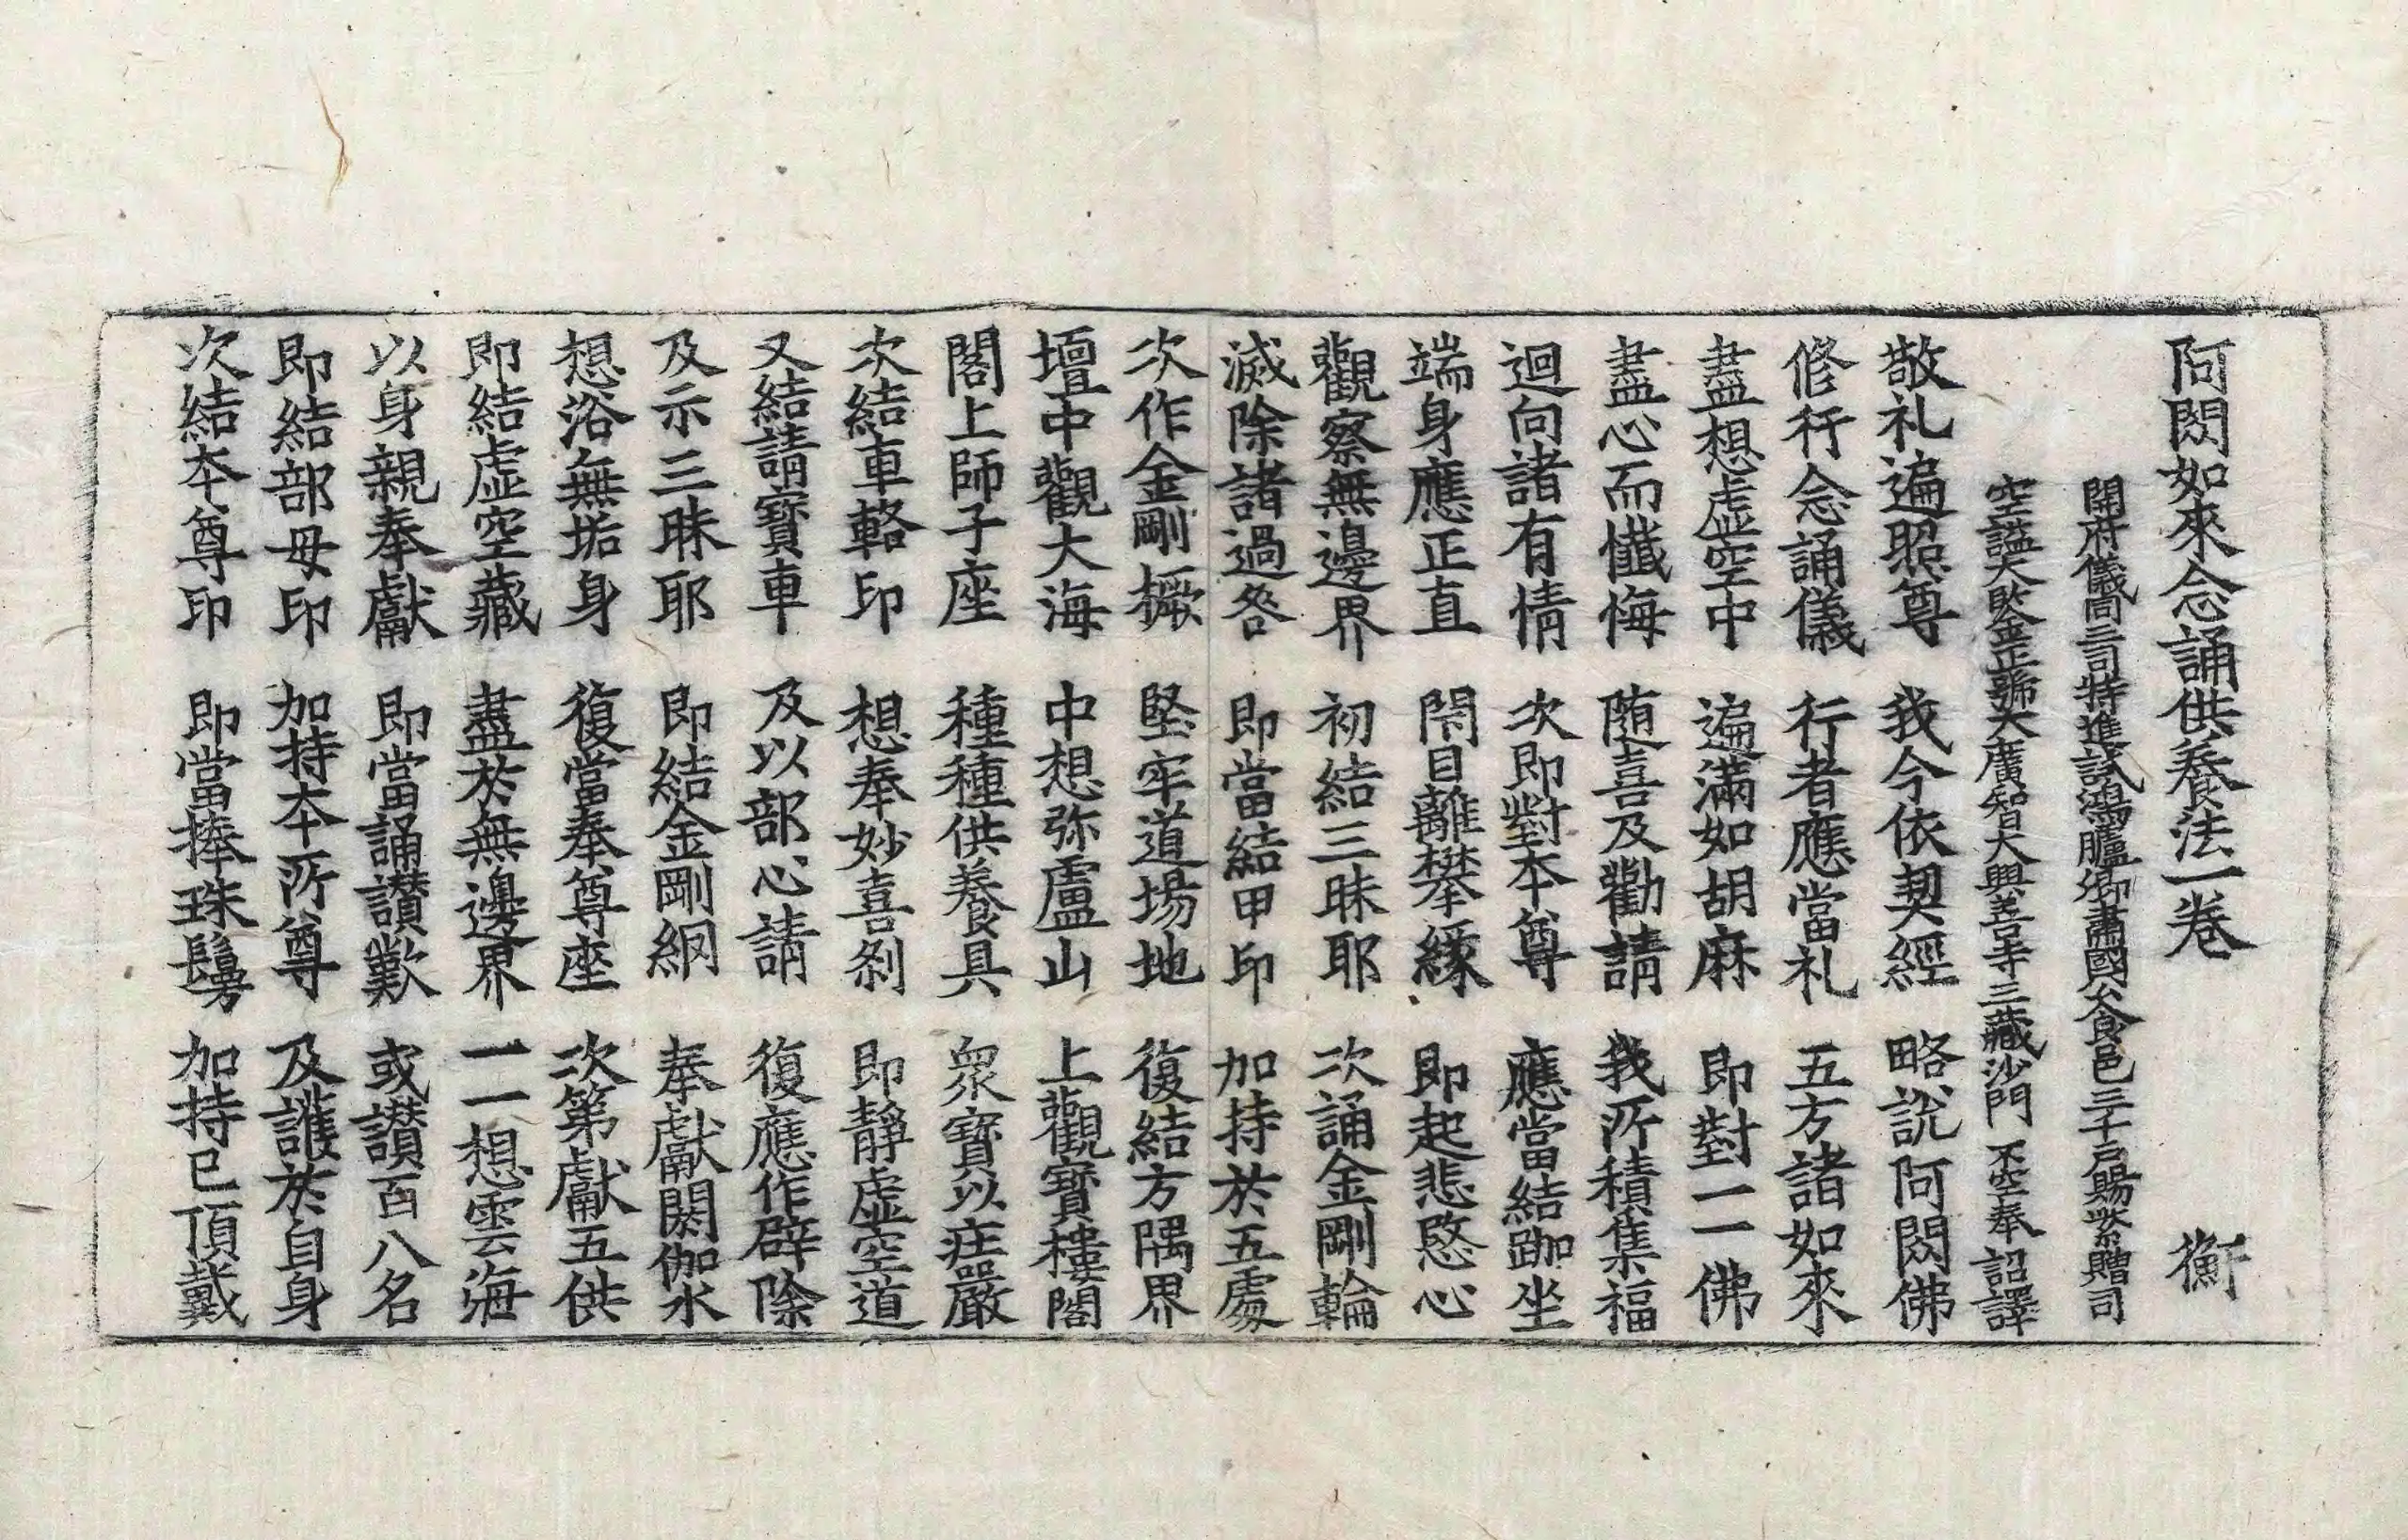 阿閦如來念誦供養法一卷 衡
開府儀同三司特進試鴻臚卿肅國公食邑三千戶賜紫贈司
空謚大鑒正號大廣智大興善寺三藏沙門 不空奉 詔譯
敬礼遍照尊 我今依契經 略說阿閦佛
修行念誦儀 行者應當礼 五方諸如來
盡想虛空中 遍滿如胡麻 即對一一佛
盡心而懺悔 随喜及勸請 我所積集福
迴向諸有情 次即對本尊 應當結跏坐
端身應正直 閇目離攀緣 即起悲愍心
觀察無邊界 初結三昧耶 次誦金剛輪
滅除諸過咎 即當結甲印 加持於五處
次作金剛橛 堅牢道場地 復結方隅界
壇中觀大海 中想弥盧山 上觀寶樓閣
閣上師子座 種種供養具 眾寶以莊嚴
次結車輅印 想奉妙喜剎 即靜虛空道
又結請寶車 及以部心請 復應作辟除
及示三昧耶 即結金剛網 奉獻閼伽水
想浴無垢身 復當奉尊座 次第獻五供
即結虛空藏 盡於無邊界 一一想雲海
以身親奉獻 即當誦讃歎 或讃百八名
即結部母印 加持本所尊 及護於自身
次結本尊印 即當捧珠鬘 加持已頂戴